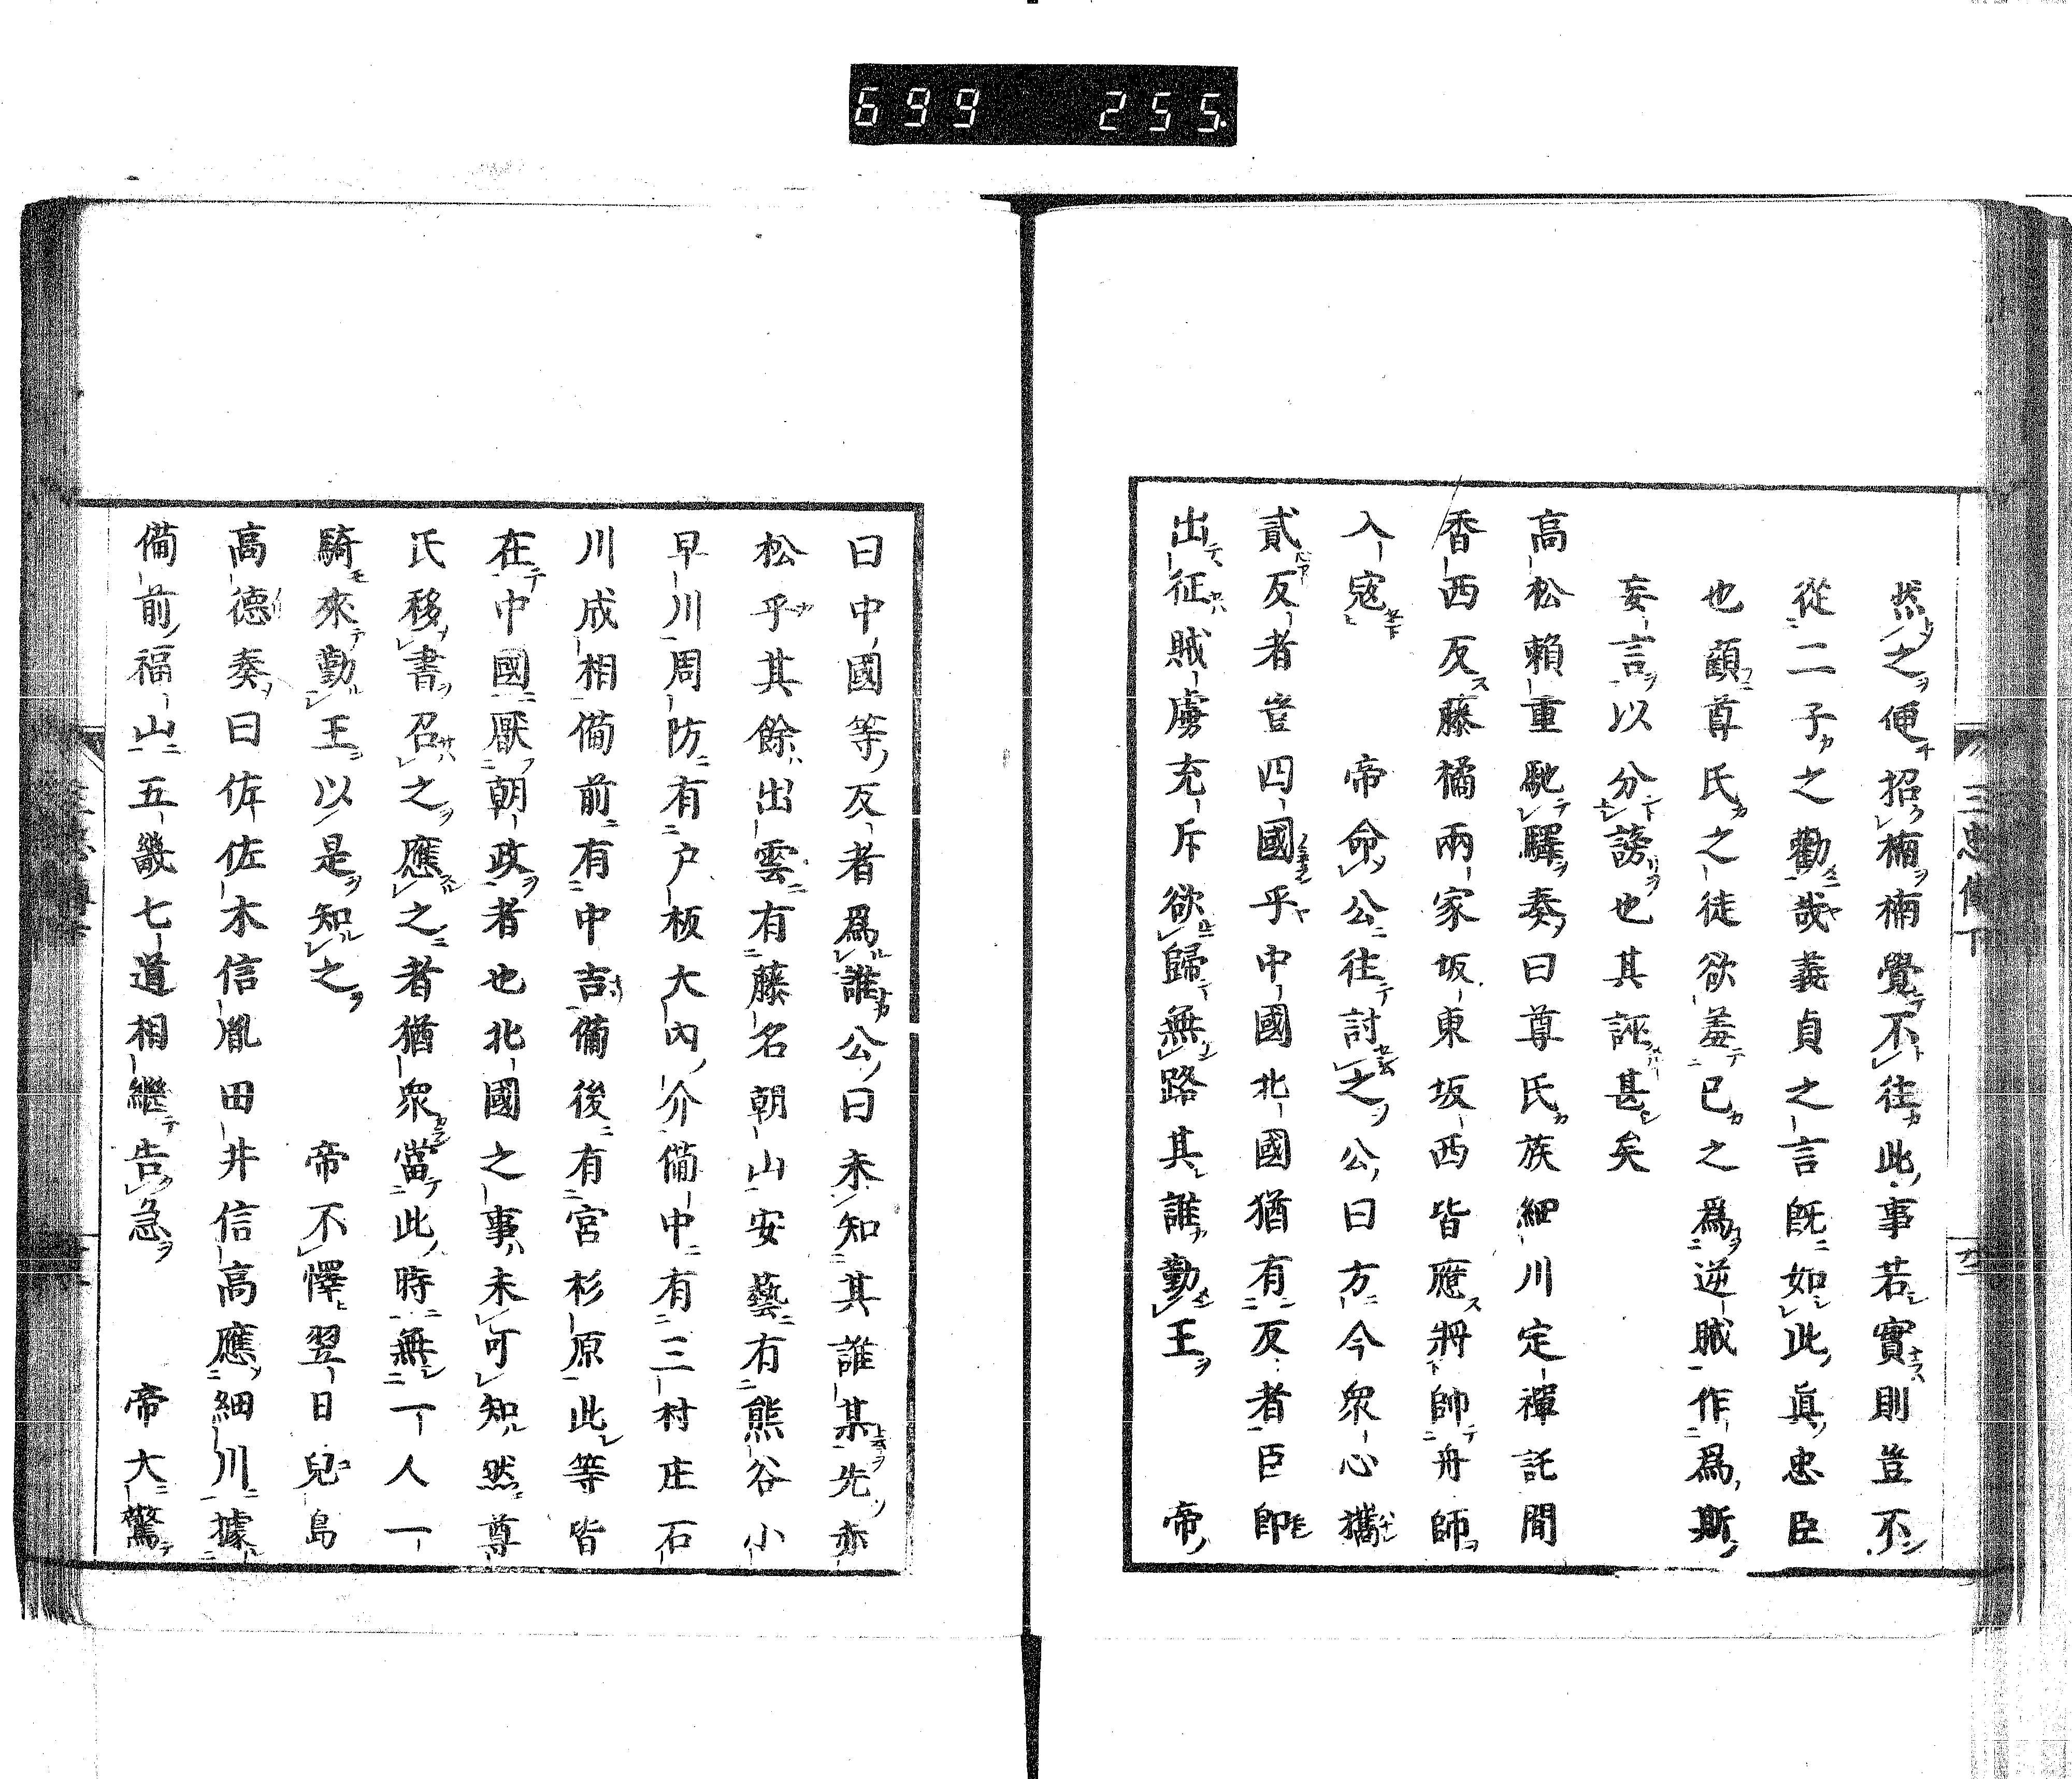 699 255.
三忠傳下
然之便招楠楠覺不往此事若實則豈不
從二子之勸哉義貞之言既如此眞忠臣
也顧尊氏之徒欲羞已之爲逆賊作爲斯
妄言以分謗也其誣甚矣
高松賴重馳驛奏曰尊氏族細川定禪託間
香西反藤橘兩家坂東坂西皆應將帥舟師
入寇　帝命公往討之公曰方今衆心攜
貳反者豈四國乎中國北國猶有反者臣卽
出征賊虜充斥欲歸無路其誰勤王　帝
曰中國等反者爲誰公曰未知其誰某先亦
松乎其餘出雲有藤名朝山安藝有熊谷小
早川周防有戸板大內介備中有三村庄石
川成相備前有中吉備後有宮杉原此等皆
在中國厭朝政者也北國之事未可知然尊
氏移書召之應之者猶衆當此時無一人一
騎來勤王以是知之　帝不懌翌日兒島
高德奏曰佐佐木信胤田井信高應細川據
備前福山五畿七道相繼告急　帝大驚